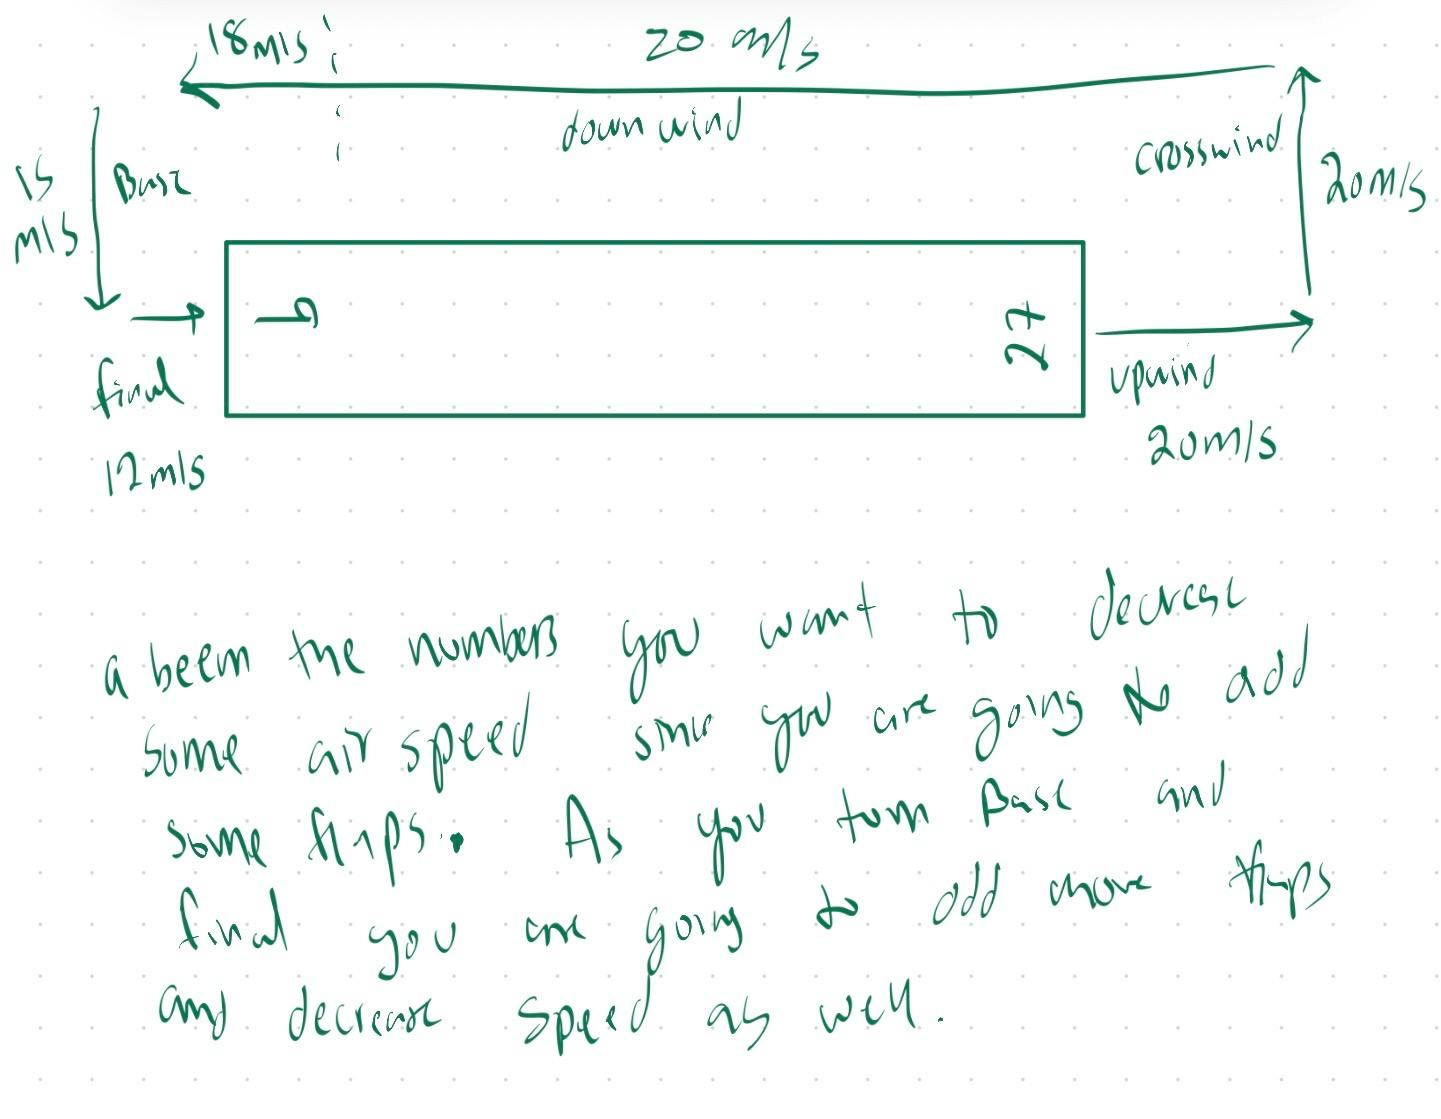 18m/s
20 m/s
down wind
crosswind
20m/s
15
m/s
Base
9
27
final
12m/s
upwind
20m/s
a beem the numbers you want to decrease
some air speed since you are going to add
some flaps. As you turn Base and
final you are going to add more flaps
and decrease speed as well.